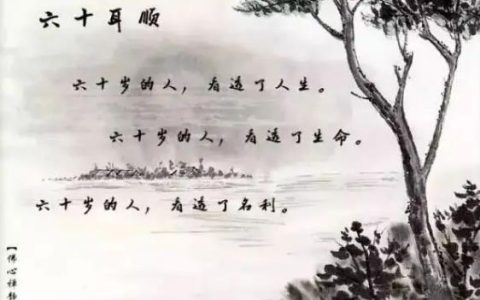 六十耳顺
六十岁的人，看透了人生。
六十岁的人，看透了生命。
六十岁的人，看透了名利。
【佛心禅